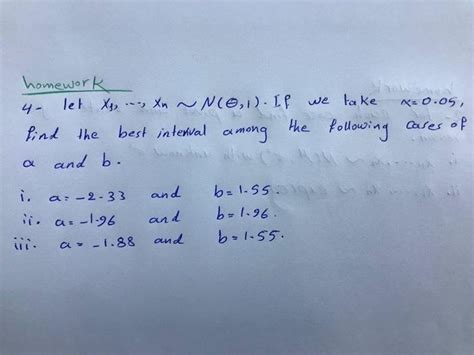 homework
4- let X1, ..., Xn ~ N(θ,1). If we take α=0.05,
find the best interval among the following cases of
a and b.
i. a=-2.33 and b=1.55.
ii. a=-1.96 and b=1.96.
iii. a=-1.88 and b=1.55.